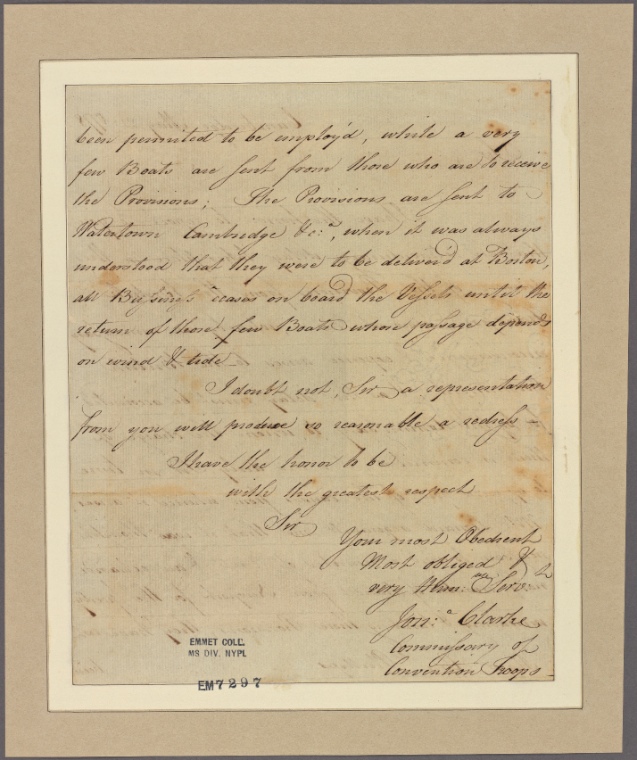 been permitted to be employ'd, while a very
few Boats are sent from those who are to receive
the Provisions; The Provisions are sent to
Watertown Cambridge &c:a, when it was always
understood that they were to be deliver'd at Boston,
all Business ceases on board the Vessels until the
return of those few Boats whose passage depends
on wind & tide—
I doubt not, Sir a representation
from you will produce so reasonable a redress—
I have the honor to be
with the greatest respect
Sir
Your most Obedient
Most obliged &
very Hum:ble Serv:t
Jon:a Clarke
Commissary of
Convention Troops—
EMMET COLL.
MS DIV. NYPL
EM7297